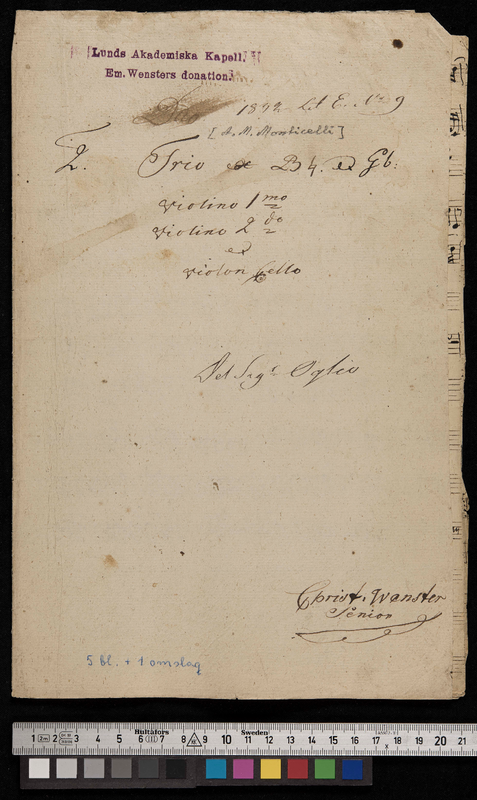 Lunds Akademiska Kapell.
Em. Wensters donation.
1842 Lit E. No 9
[A. M. Monticelli]
2. Trio ex B♮. ed G b.
Violino 1 mo
Violino 2 do
ed
Violon Cello
Del Sigr Oglio
Christ. Wenster
Senior
5 bl. + 1 omslag
Hultafors Sweden
1 2 3 4 5 6 7 8 9 10 11 12 13 14 15 16 17 18 19 20 21